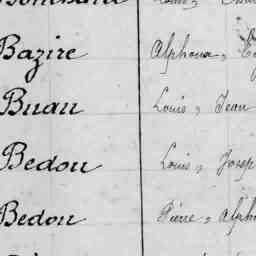 Bazire Alphonse,
Buau Louis, Jean
Bedou Louis, Josep
Bedou Pierre, Alpho